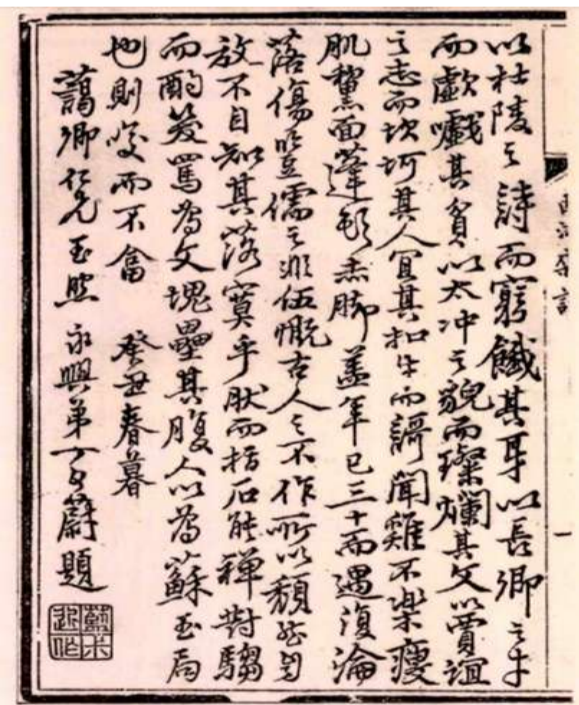 以杜陵之詩而窮餓其身以長卿之才
而歔嚱其貧以太冲之貌而璨斕其文以賈誼
之志而坎坷其人宜其扣牛而謌聞雞不樂瘦
肌黧面蓬頭赤脚蓋年已三十而遇復淪
落傷豎儒之非伍慨古人之不作所以頹然自
放不自知其落寞乎肰而指石能禪對騶
而酌笑罵為文塊壘其腹人以為蘇玉局
也則笑而不畣 癸丑春暮
藹卿仁兄玉照 永興弟丁蔚題